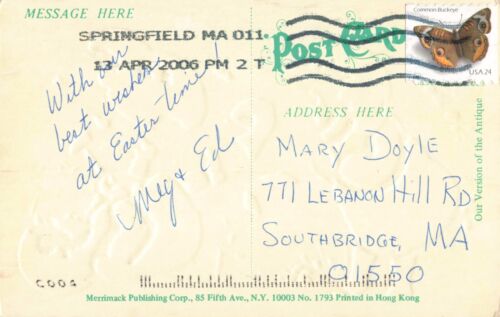 MESSAGE HERE
SPRINGFIELD MA 011
13 APR/2006 PM 2 T
POST CARD
Common Buckeye
USA 24
With our
best wishes
at Easter time!
Meg & Ed
ADDRESS HERE
MARY DOYLE
771 LEBANON HILL RD
SOUTHBRIDGE, MA
01550
Our Version of the Antique
Merrimack Publishing Corp., 85 Fifth Ave., N.Y. 10003 No. 1793 Printed in Hong Kong